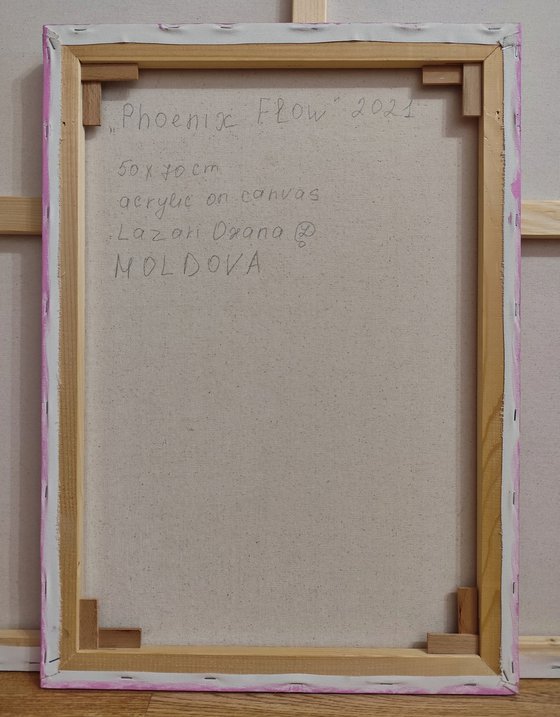 „Phoenix Flow" 2021
50 x 70 cm
acrylic on canvas
Lazari Oxana
MOLDOVA